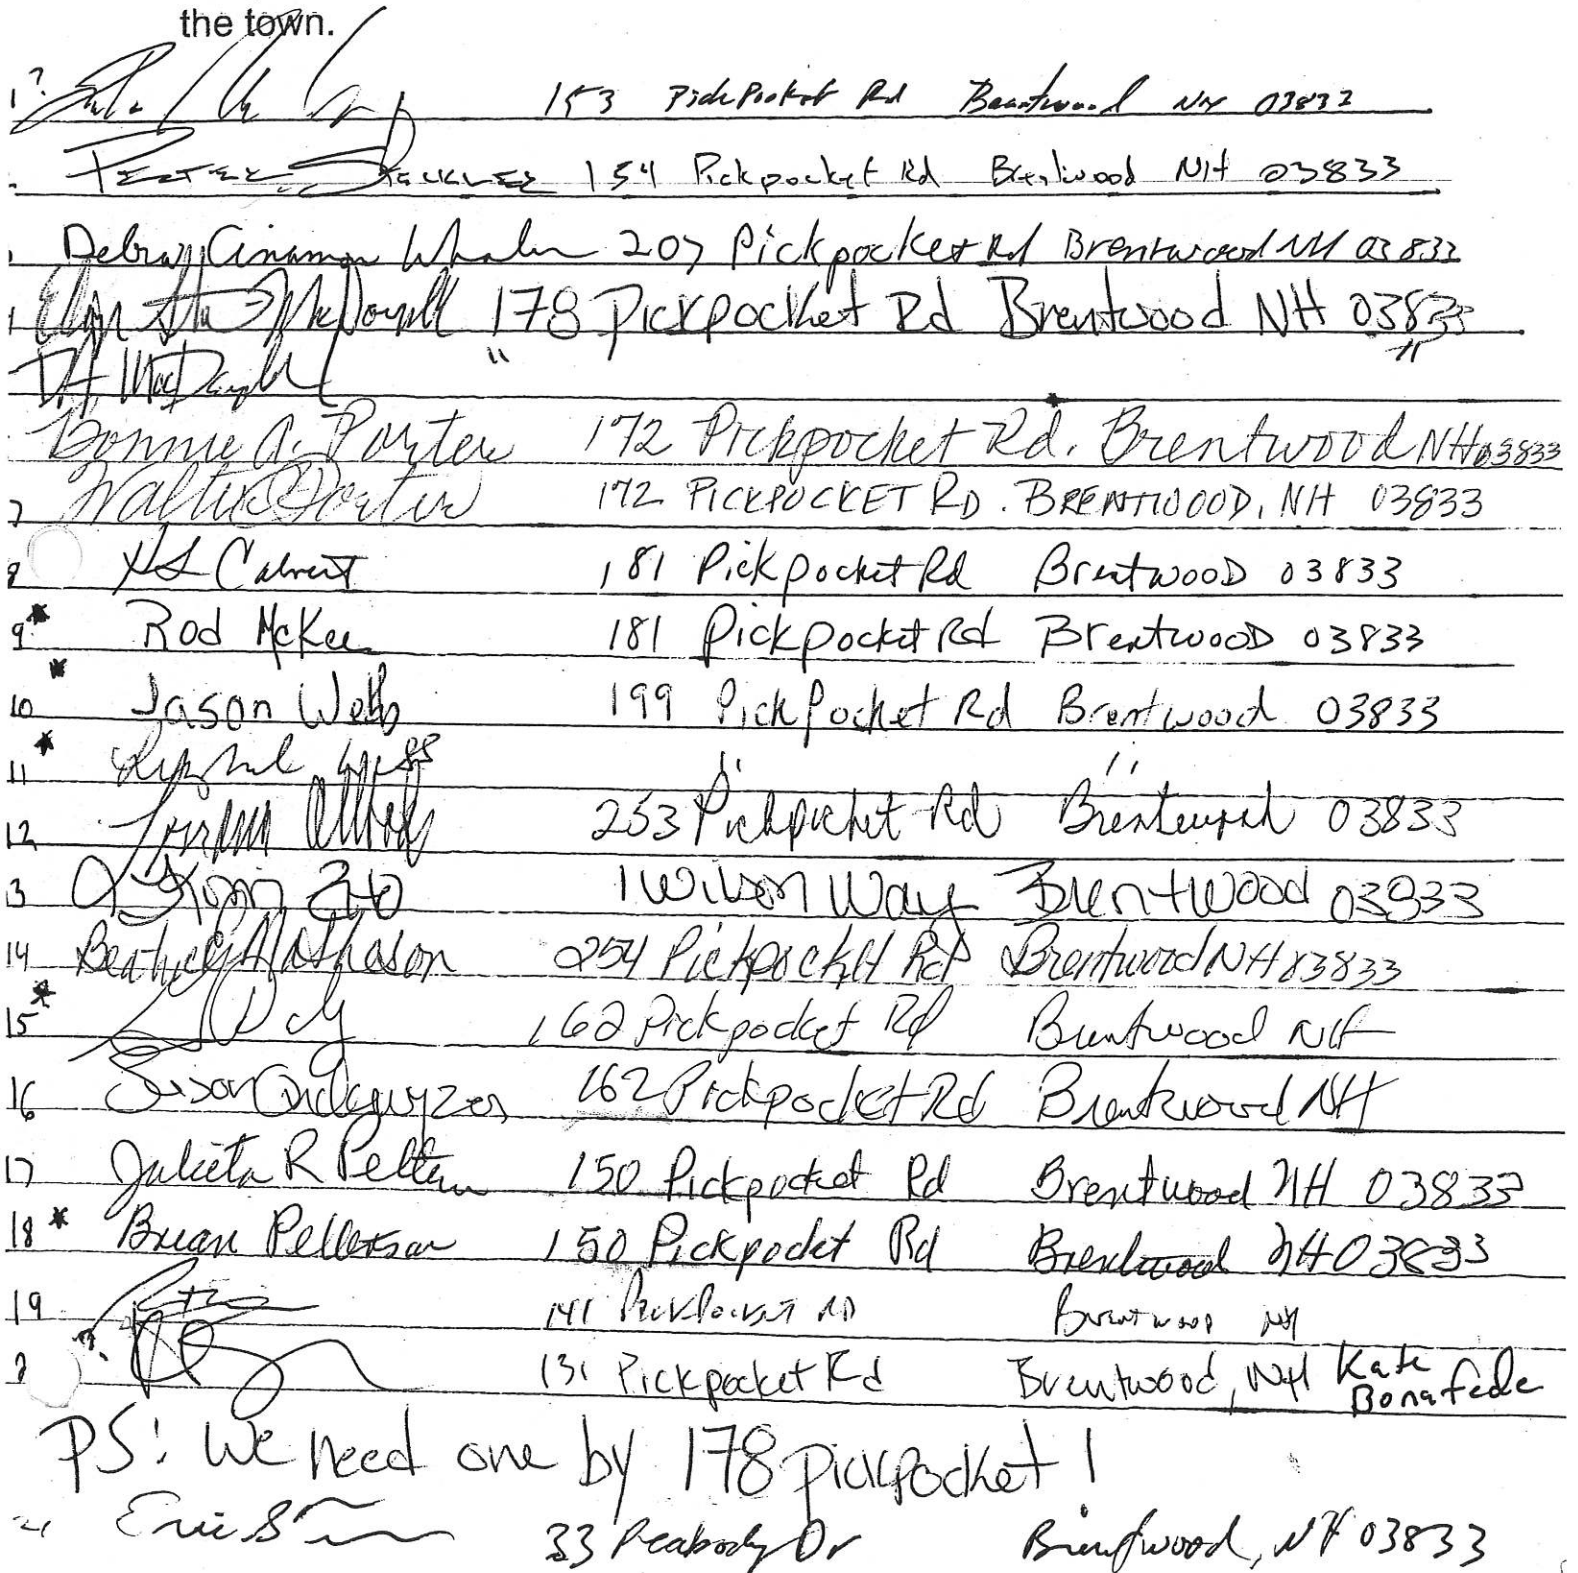 the town.
1 153 PickPocket Rd Brentwood NH 03833
Peter 154 Pickpocket Rd Brentwood NH 03833
Debra Cinamon Whalen 207 Pickpocket Rd Brentwood NH 03833
178 Pickpocket Rd Brentwood NH 03833
" "
Bonnie A. Porter 172 Pickpocket Rd. Brentwood NH 03833
7 Walter Porter 172 PICKPOCKET RD. BRENTWOOD, NH 03833
8 Calvert 181 Pickpocket Rd Brentwood 03833
9 * Rod McKee 181 Pickpocket Rd Brentwood 03833
10 * Jason Webb 199 PickPocket Rd Brentwood 03833
11 * " "
12 253 Pickpocket Rd Brentwood 03833
13 1 Wilson Way Brentwood 03833
14 Beatrice Mathason 254 Pickpocket Rd Brentwood NH 03833
15 * 162 Pickpocket Rd Brentwood NH
16 162 Pickpocket Rd Brentwood NH
17 Julieta R 150 Pickpocket Rd Brentwood NH 03833
18 * Brian 150 Pickpocket Rd Brentwood NH 03833
19 141 PickPocket RD Brentwood NH
131 Pickpocket Rd Brentwood, NH Kate Bonafede
PS! We need one by 178 pickpocket!
21 Eric 33 Peabody Dr Brentwood, NH 03833